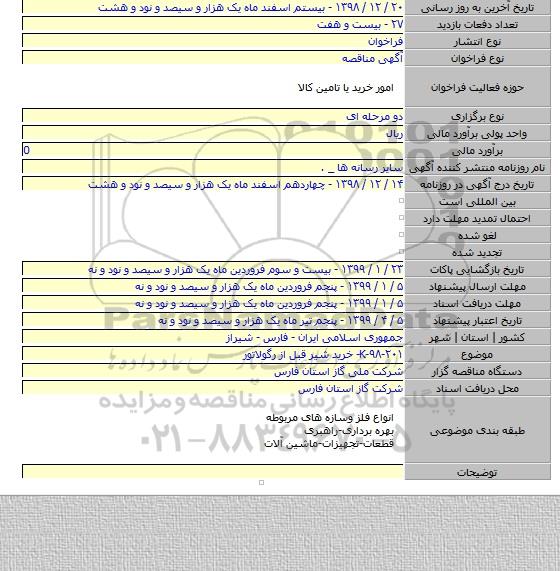 تاریخ آخرین به روز رسانی ۲۰ / ۱۲ / ۱۳۹۸ - بیستم اسفند ماه یک هزار و سیصد و نود و هشت
تعداد دفعات بازدید ۲۷ - بیست و هفت
نوع انتشار فراخوان
نوع فراخوان آگهی مناقصه
حوزه فعالیت فراخوان امور خرید با تامین کالا
نوع برگزاری دو مرحله ای
واحد پولی برآورد مالی ریال
برآورد مالی 0
نام روزنامه منتشر کننده آگهی سایر رسانه ها _ .
تاریخ درج آگهی در روزنامه ۱۴ / ۱۲ / ۱۳۹۸ - چهاردهم اسفند ماه یک هزار و سیصد و نود و هشت
بین المللی است
احتمال تمدید مهلت دارد
لغو شده
تجدید شده
تاریخ بازگشایی پاکات ۲۳ / ۱ / ۱۳۹۹ - بیست و سوم فروردین ماه یک هزار و سیصد و نود و نه
مهلت ارسال پیشنهاد ۵ / ۱ / ۱۳۹۹ - پنجم فروردین ماه یک هزار و سیصد و نود و نه
مهلت دریافت اسناد ۵ / ۱ / ۱۳۹۹ - پنجم فروردین ماه یک هزار و سیصد و نود و نه
تاریخ اعتبار پیشنهاد ۵ / ۴ / ۱۳۹۹ - پنجم تیر ماه یک هزار و سیصد و نود و نه
کشور | استان | شهر جمهوری اسلامی ایران - فارس - شیراز
موضوع K-۹۸-۲۰۱- خرید شیر قبل از رگولاتور
دستگاه مناقصه گزار شرکت ملی گاز استان فارس
محل دریافت اسناد شرکت گاز استان فارس
پایگاه اطلاع رسانی مناقصه و مزایده
طبقه بندی موضوعی انواع فلز وسازه های مربوطه
بهره برداری-راهبری
قطعات-تجهیزات-ماشین آلات
توضیحات